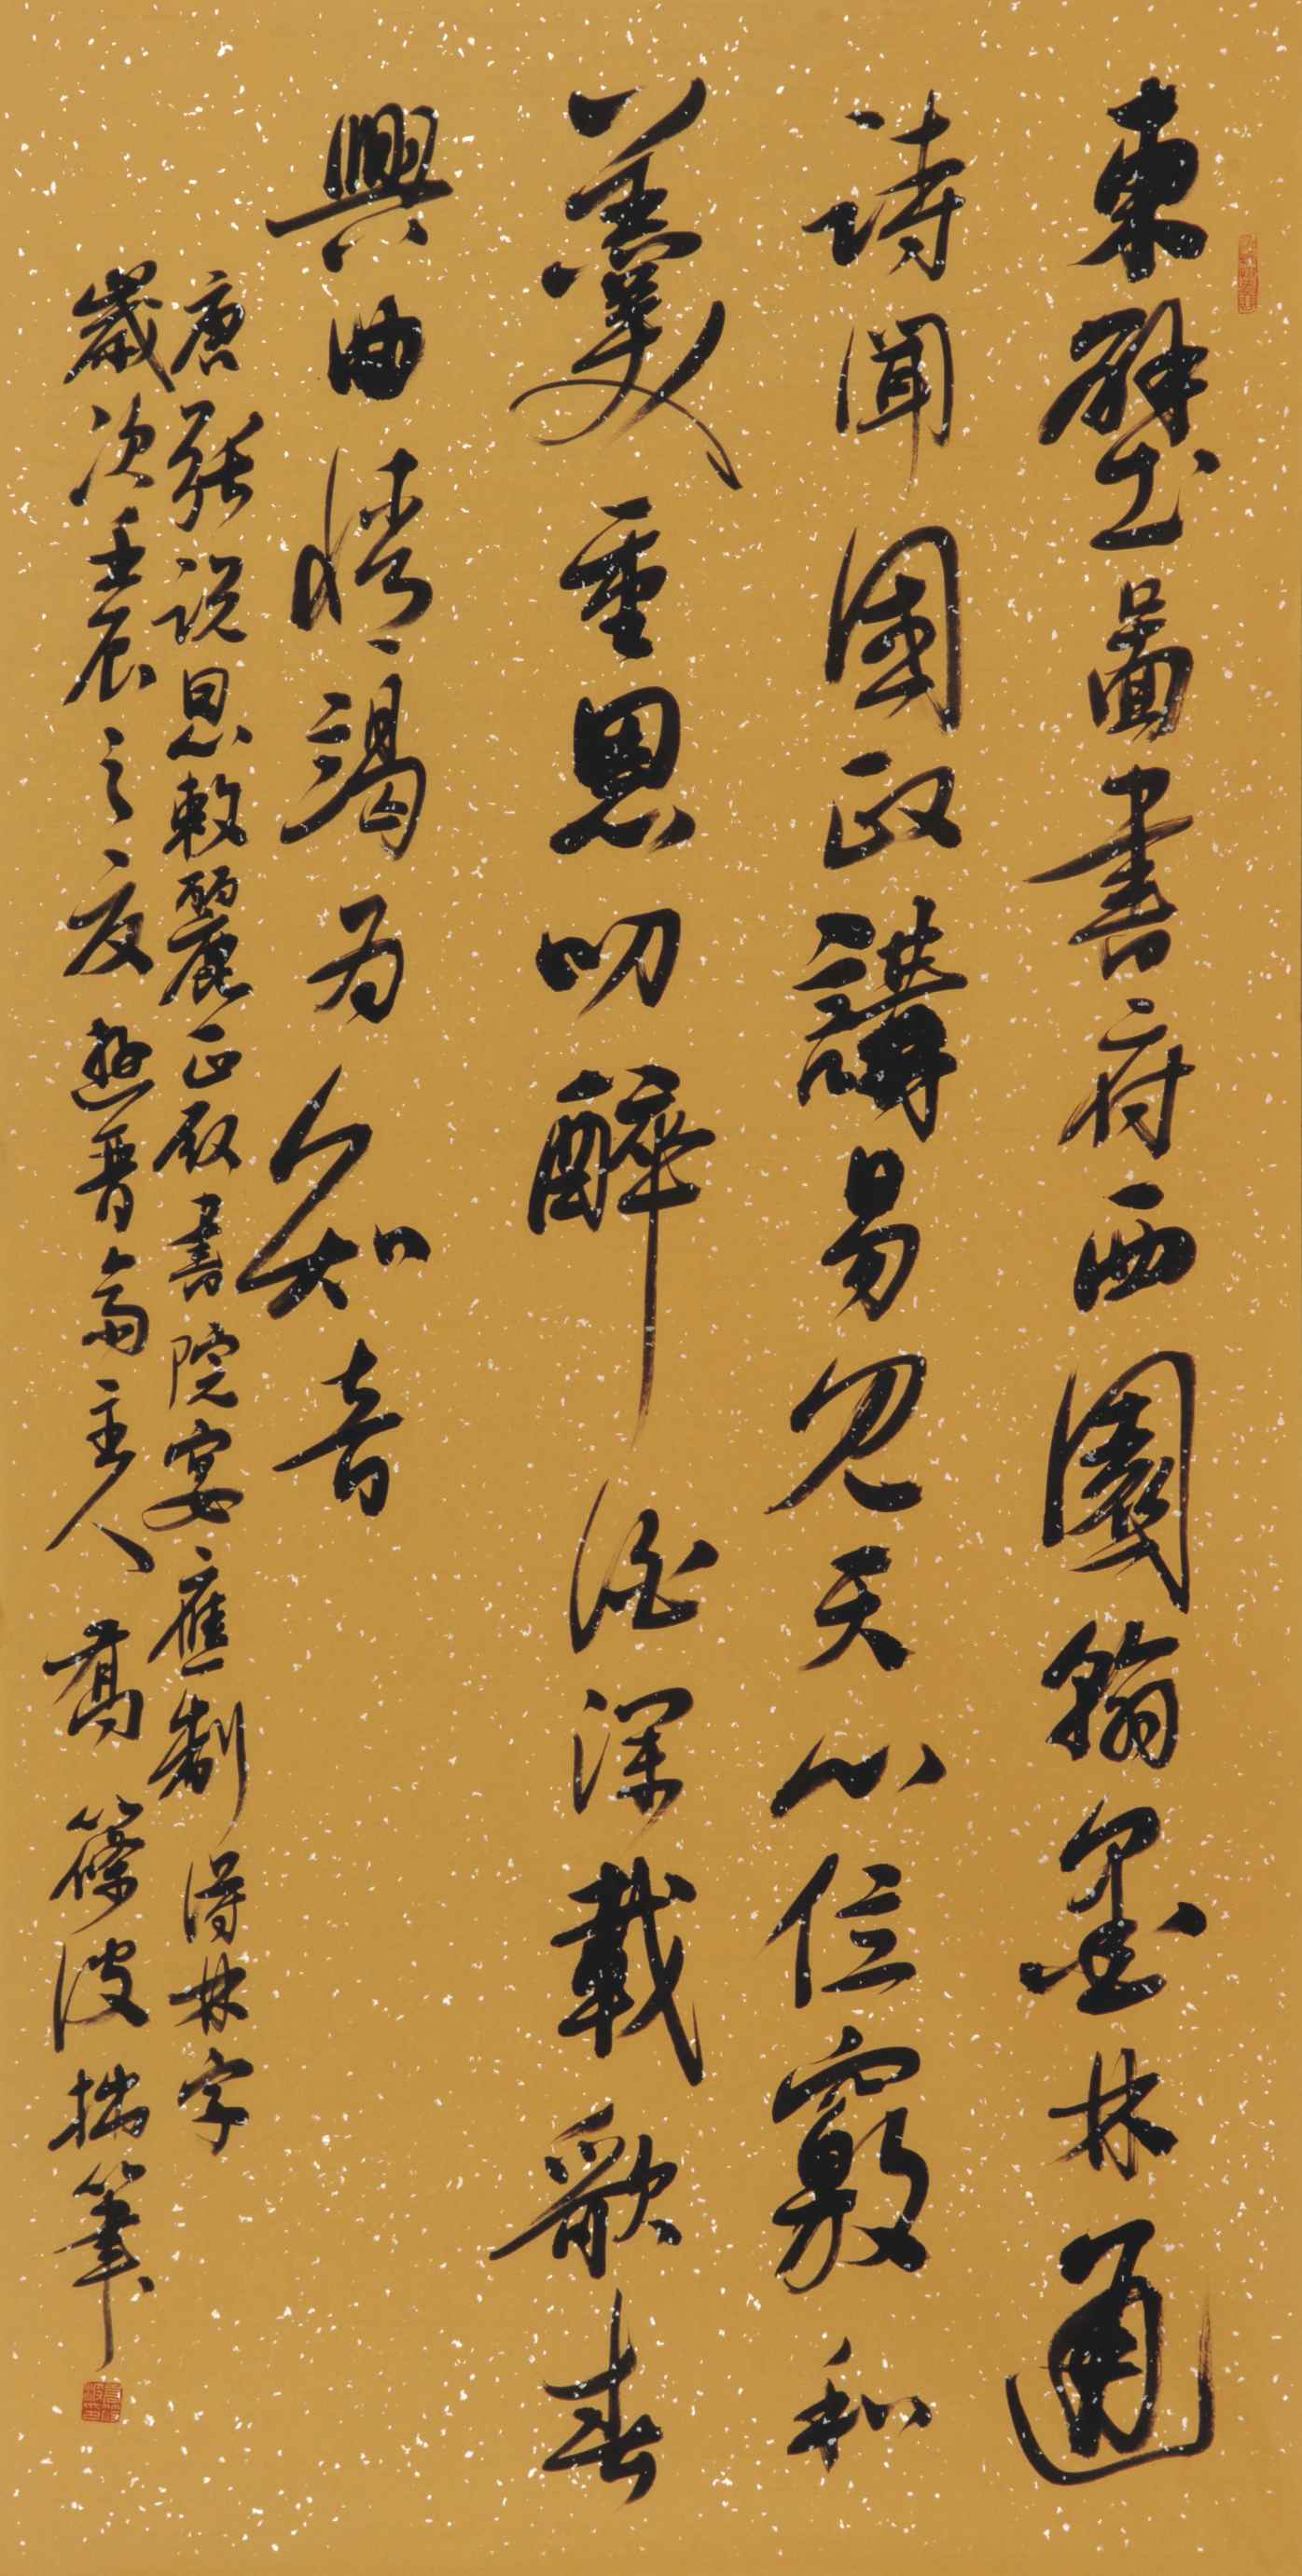 東壁圖書府西園翰墨林通
詩聞國政講易見天心位竅和
羹重恩叨醉酒深載歌春
興曲情竭為知音
唐張說恩敕麗正殿書院宴應制得林字
歲次壬辰之夏晉齋主人葛篠波拙筆